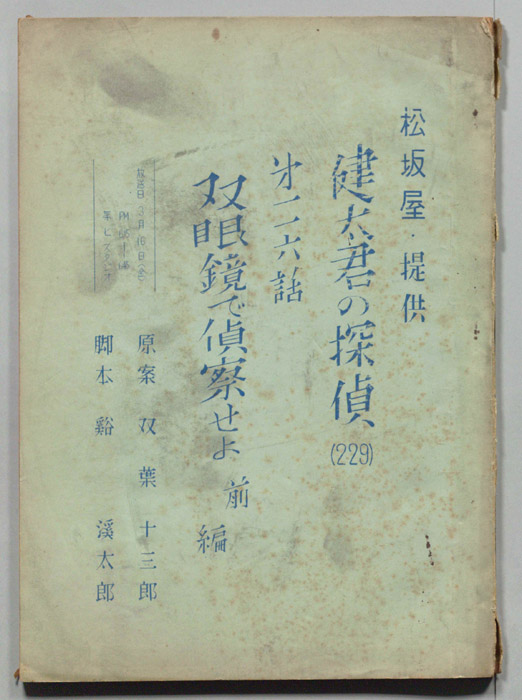 松坂屋・提供
健太君の探偵
(229)
第二六話
双眼鏡で偵察せよ 前編
放送日 3月16日(金)
原案 双葉 十三郎
脚本 谿 渓太郎